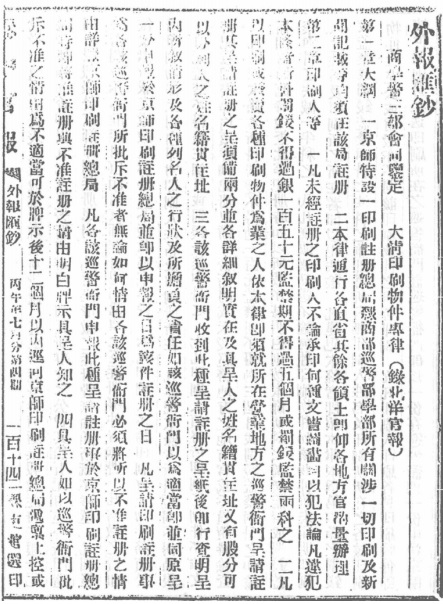 外報匯鈔
商學警三部會同鑒定　大清印刷物件專律（錄北洋官報）
第一章大綱　一京師特設一印刷註册總局隸商部巡警部學部所有關涉一切印刷及新
聞記載等均須在該局註册　二本律通行各直省其餘各領土即仰各地方官酌量辦理
第二章印刷人等　一凡未經註册之印刷人不論承印何種文書圖畫均以犯法論凡違犯
本條者所科罰鍰不得過銀一百五十元監禁期不得過五個月或罰鍰監禁兩科之　二凡
以印刷或發賣各種印刷物件為業之人依本律即須就所在營業地方之巡警衙門呈請註
册其呈請註册之呈須備兩分並各詳細叙明實在及具呈人之姓名籍貫住址又有股分可
以分利人之姓名籍貫住址　三各該巡警衙門收到此種呈請註册之呈紙後即行查明呈
內所叙情形及各種列名人之行狀及所擔負之責任如該巡警衙門以為適當即並同原呈
一分申報於京師印刷註册總局並即以申報之日為該件註册之日　凡呈請印刷註册事
為各該巡警衙門所批斥不准者無論如何情由各該巡警衙門必須將所以不准註册之情
由詳報京師印刷註册總局　凡各該巡警衙門申報此種呈請註册事於京師印刷註册總
局時即將准註册與不准註册之情由明白牌示具呈人知之　四具呈人如以巡警衙門批
斥不准之情由為不適當可於牌示後十二個月以內逕向京師印刷註册總局遞禀上控或
官報　外報匯鈔　丙午年七月分第四期　一百十四　選印